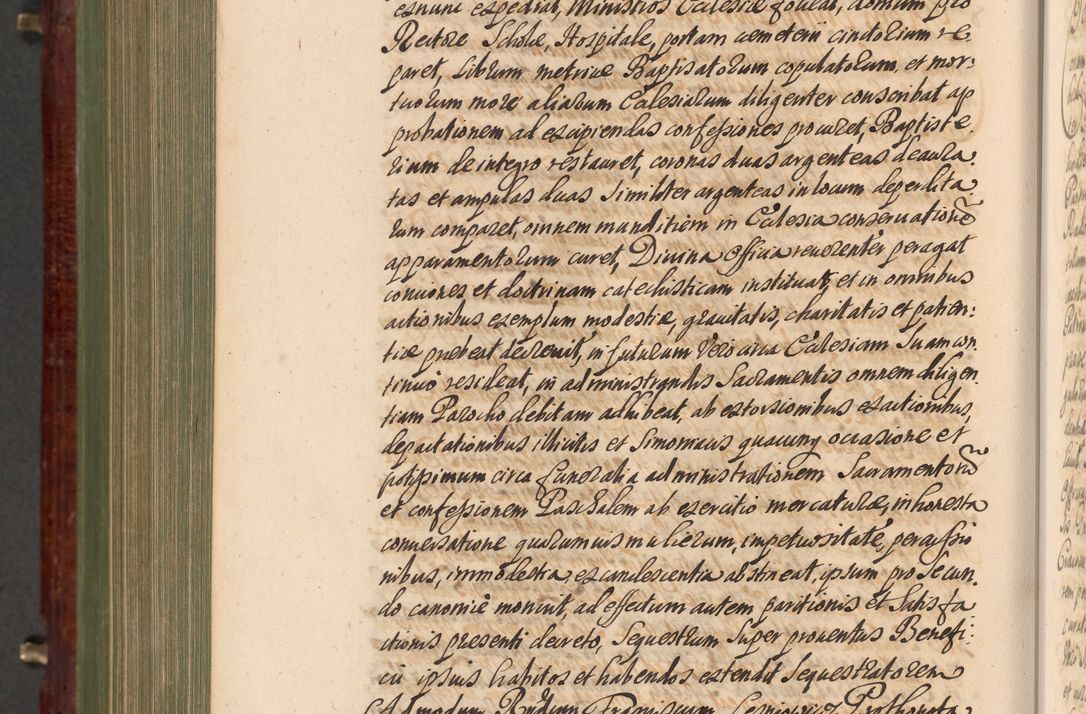 esnunt expediat, Ministros Ecclesiæ foveat, domum pro
Rectore Scholæ, Hospitale, portam cæmeterii cinctorium re
paret, Librum metricæ Baptisatorum copulatorum, et mor:
tuorum more aliarum Ecclesiarum diligenter conscribat ap
probationem ad excipiendas confessiones procuret, Baptiste
rium de integro restauret, coronas duas argenteas deaura
tas et ampulas duas similiter argenteas in locum deperdita
rum comparet, omnem munditiem in Ecclesia conservatione
apparamentorum curet, Divina Officia reverenter peragat
conciones et doctrinam catechisticam instituat, et in omnibus
actionibus exemplum modestiæ, gravitatis, charitatis et patien:
tiæ præbeat decrevit, in futurum vero circa Ecclesiam suam con
tinuo resideat, in administrandis Sacramentis omnem diligen
tiam Parocho debitam adhibeat, ab extorsionibus exactionibus,
depactationibus illicitis et Simoniacis quacunq occasione et
potissimum circa funeralia administrationem Sacramentorũ
et confessionem Paschalem ab exercitio mercaturæ, inhonesta
conversatione quarumvis mulierum, impetuositate, percussio
nibus, immodestia, excandescentia abstineat, ipsum pro secun
do canonice monuit, ad effectum autem paritionis et satisfa
ctionis præsenti decreto, Sequestrum super proventus Benefi:
cii ipsius habitos et habendos extendit sequestratorem
Admodum Rndum Franciscum Prothonota